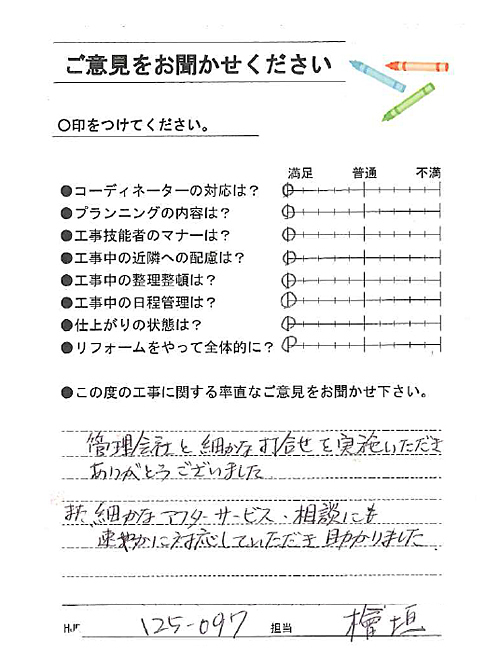 ご意見をお聞かせください
〇印をつけてください。
満足 普通 不満
●コーディネーターの対応は？
●プランニングの内容は？
●工事技能者のマナーは？
●工事中の近隣への配慮は？
●工事中の整理整頓は？
●工事中の日程管理は？
●仕上がりの状態は？
●リフォームをやって全体的に？
●この度の工事に関する率直なご意見をお聞かせ下さい。
管理会社と細かな打合せを実施いただき
ありがとうございました
また、細かなアフターサービス・相談にも
速やかに対応していただき助かりました
125-097 担当 檜垣